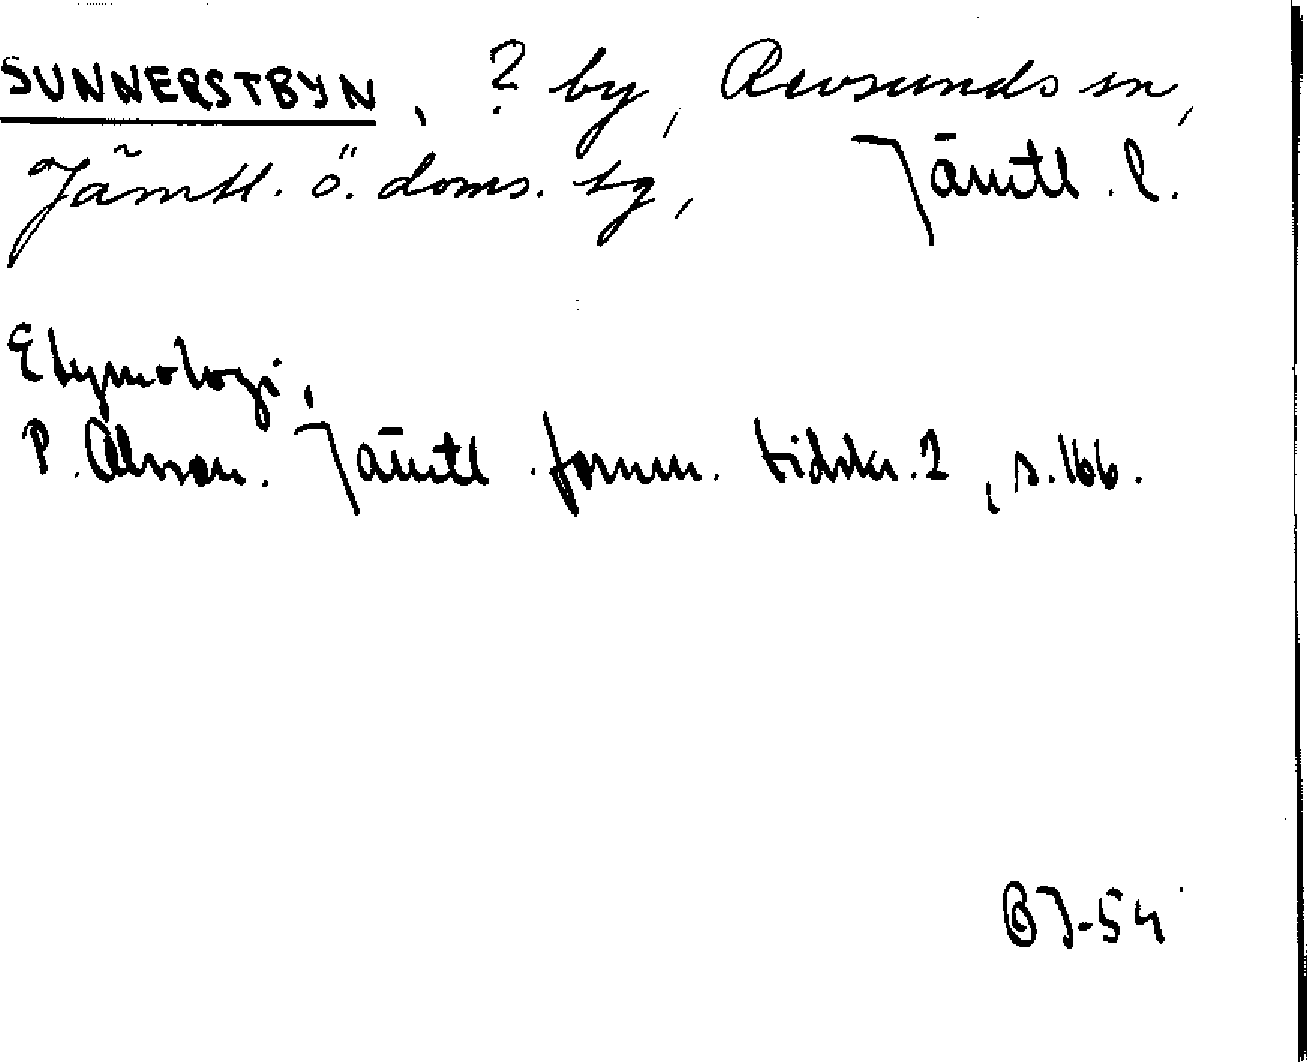 SUNNERSTBYN, ? by, Revsunds sn,
Jämtl. ö. doms. tg, Jämtl. l.
Etymologi,
P. Olsson. Jämtl. fornm. tidskr. 2, s. 166.
BJ-54